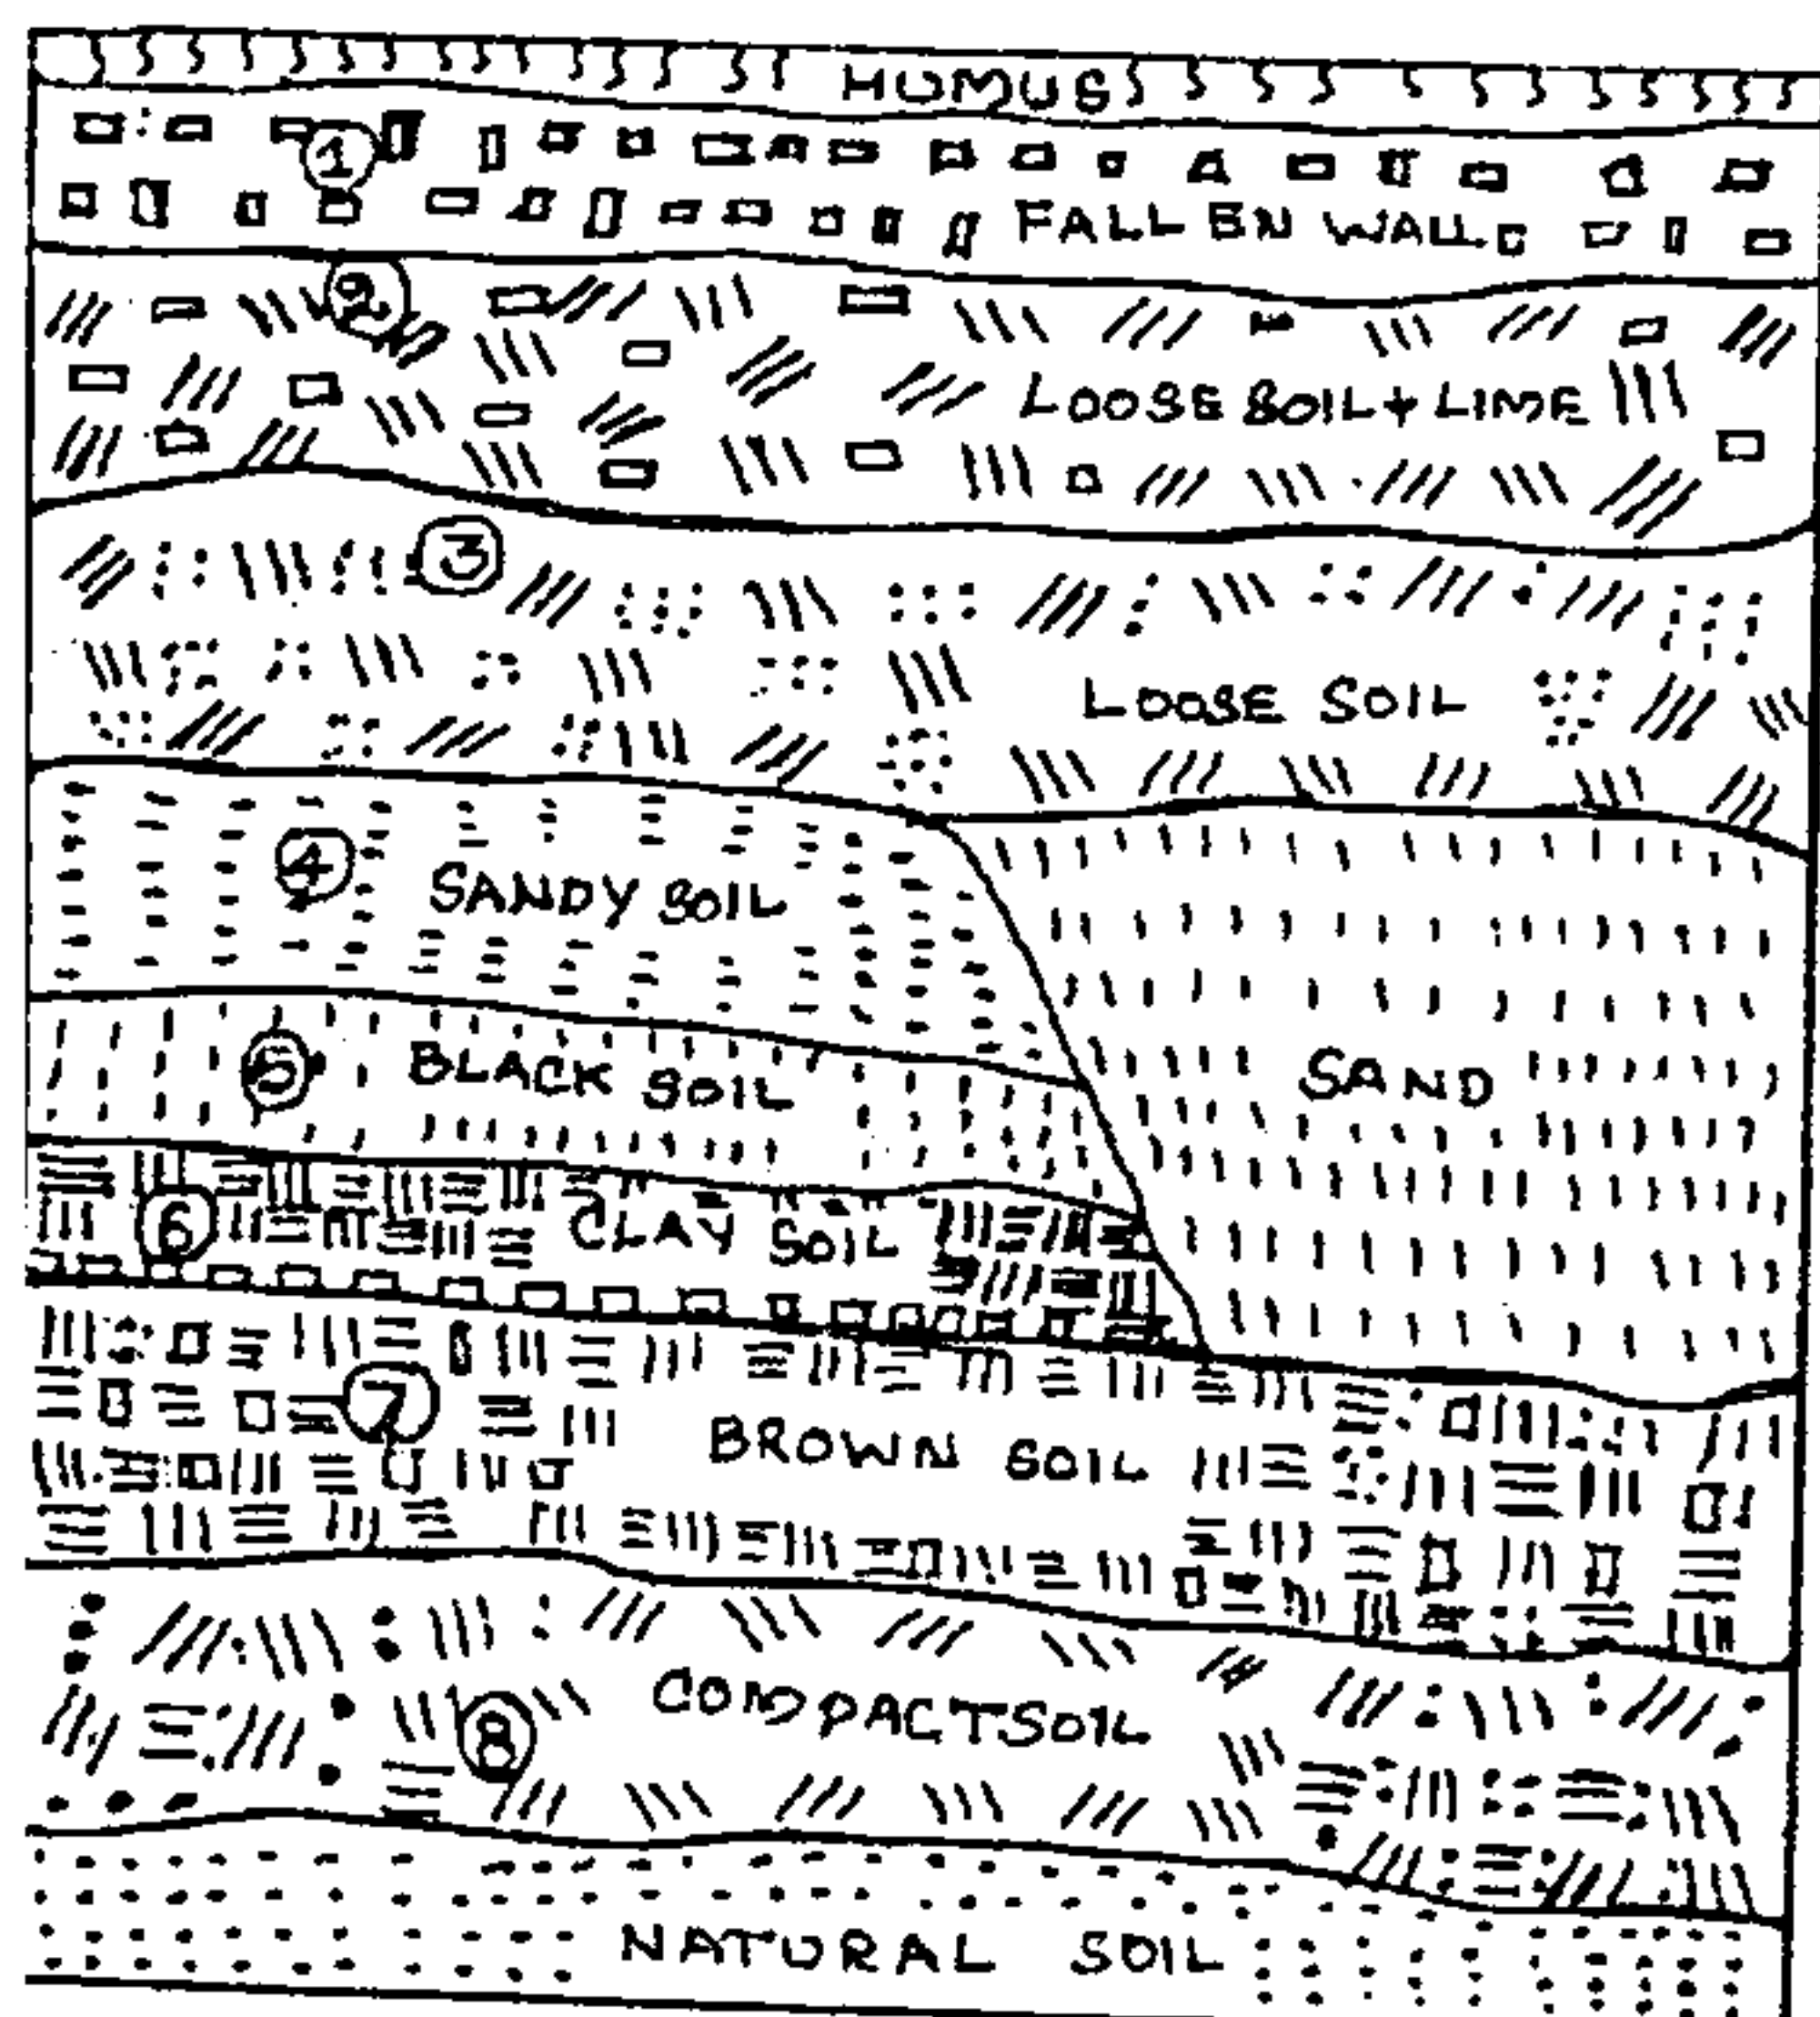 HUMUS
1
FALLEN WALL
2
LOOSE SOIL + LIME
3
LOOSE SOIL
4
SANDY SOIL
5
BLACK SOIL
SAND
6
CLAY SOIL
7
BROWN SOIL
8
COMPACT SOIL
NATURAL SOIL